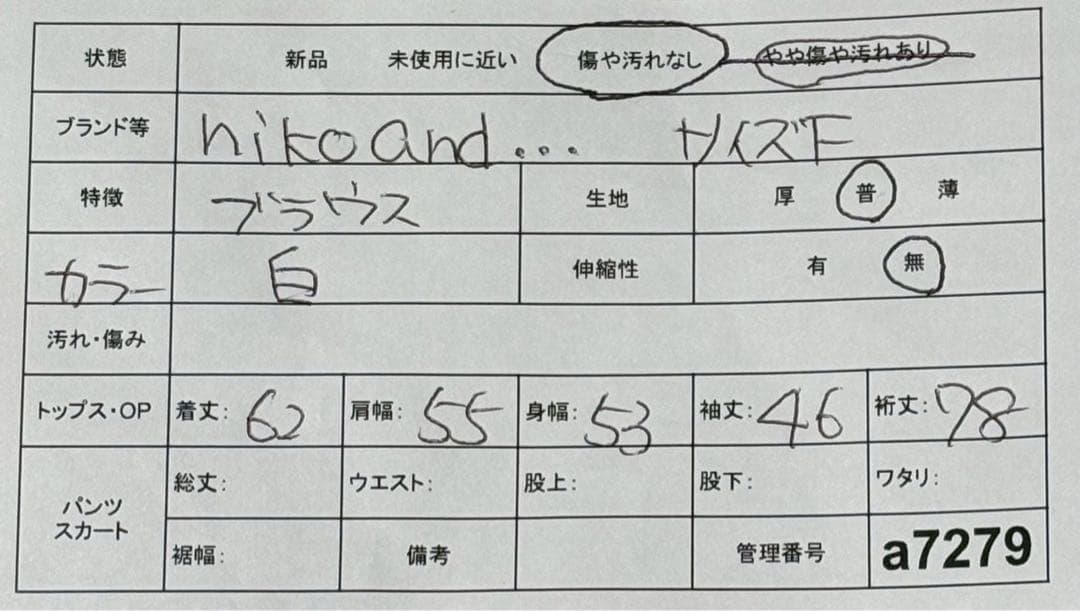 状態 新品 未使用に近い 傷や汚れなし やや傷や汚れあり
ブランド等 niko and ... サイズF
特徴 ブラウス 生地 厚 普 薄
カラー 白 伸縮性 有 無
汚れ・傷み
トップス・OP 着丈: 62 肩幅: 55 身幅: 53 袖丈: 46 裄丈: 78
パンツ スカート 総丈: ウエスト: 股上: 股下: ワタリ:
裾幅: 備考 管理番号 a7279